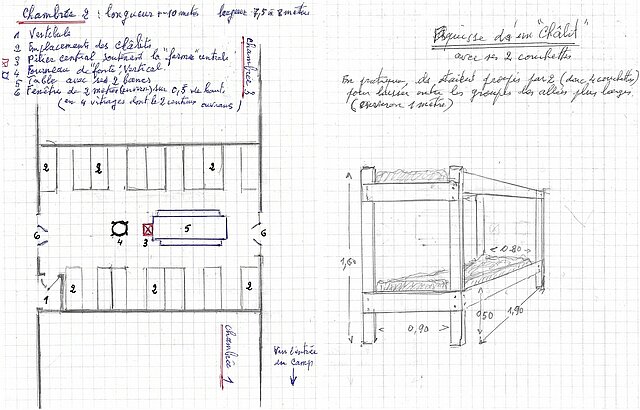 Chambrée 2 : longueur ~ 10 mètres largeur ~ 7,5 à 8 mètres
1 Vestibule
2 Emplacements des châlits
3 Pilier central soutenant la "ferme" centrale
4 Fourneau de fonte, vertical
5 Table avec ses 2 bancs
6 Fenêtres de 2 mètres (environ) sur 0,5 de haut
(en 4 vitrages dont le 2 centraux ouvrants)
chambrée 2
2 2 2
6 4 3 5 6
1 2 2 2
chambrée 1
Vers l'entrée
du camp
Esquisse d'un "Châlit"
avec ses 2 couchettes
En pratique, ils étaient groupés par 2 (donc 4 couchettes)
pour laisser entre les groupes des allées plus larges
(environ 1 mètre)
1,60
0.80
0,90
0,50
1,90